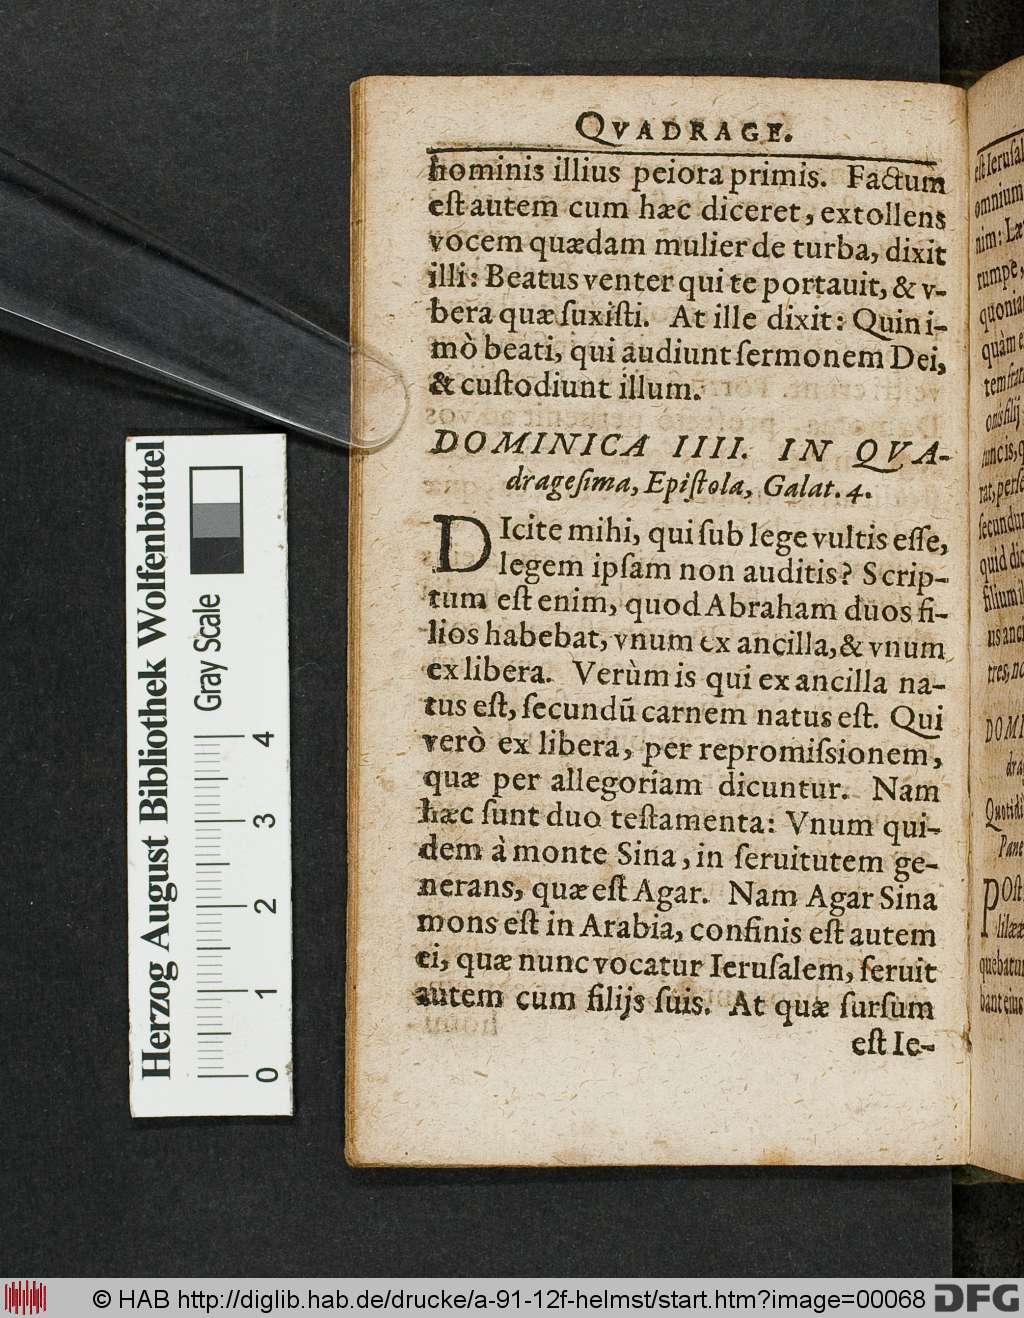 QVADRAGE.
hominis illius peiora primis. Factum
eſt autem cum hæc diceret, extollens
vocem quædam mulier de turba, dixit
illi: Beatus venter qui te portauit, & v-
bera quæ ſuxiſti. At ille dixit: Quin i-
mò beati, qui audiunt ſermonem Dei,
& cuſtodiunt illum.
DOMINICA IIII. IN QVA-
drageſima, Epiſtola, Galat. 4.
DIcite mihi, qui ſub lege vultis eſſe,
legem ipſam non auditis? Scrip-
tum eſt enim, quod Abraham duos fi-
lios habebat, vnum ex ancilla, & vnum
ex libera. Verùm is qui ex ancilla na-
tus eſt, ſecundũ carnem natus eſt. Qui
verò ex libera, per repromiſsionem,
quæ per allegoriam dicuntur. Nam
hæc ſunt duo teſtamenta: Vnum qui-
dem à monte Sina, in ſeruitutem ge-
nerans, quæ eſt Agar. Nam Agar Sina
mons eſt in Arabia, confinis eſt autem
ei, quæ nunc vocatur Ieruſalem, ſeruit
autem cum filijs ſuis. At quæ ſurſum
eſt Ie-
eſt Ieruſal
omnium
nim: Læ
rumpe,
quonia
quàm e
onis filij
ſecundum
quid dic
filium i
us anci
tres, no
DOMI
dra
Quotidi
Pane
POſt
lilææ
quebatur
bant eius
Herzog August Bibliothek Wolfenbüttel
Gray Scale
0 1 2 3 4
© HAB http://diglib.hab.de/drucke/a-91-12f-helmst/start.htm?image=00068
DFG